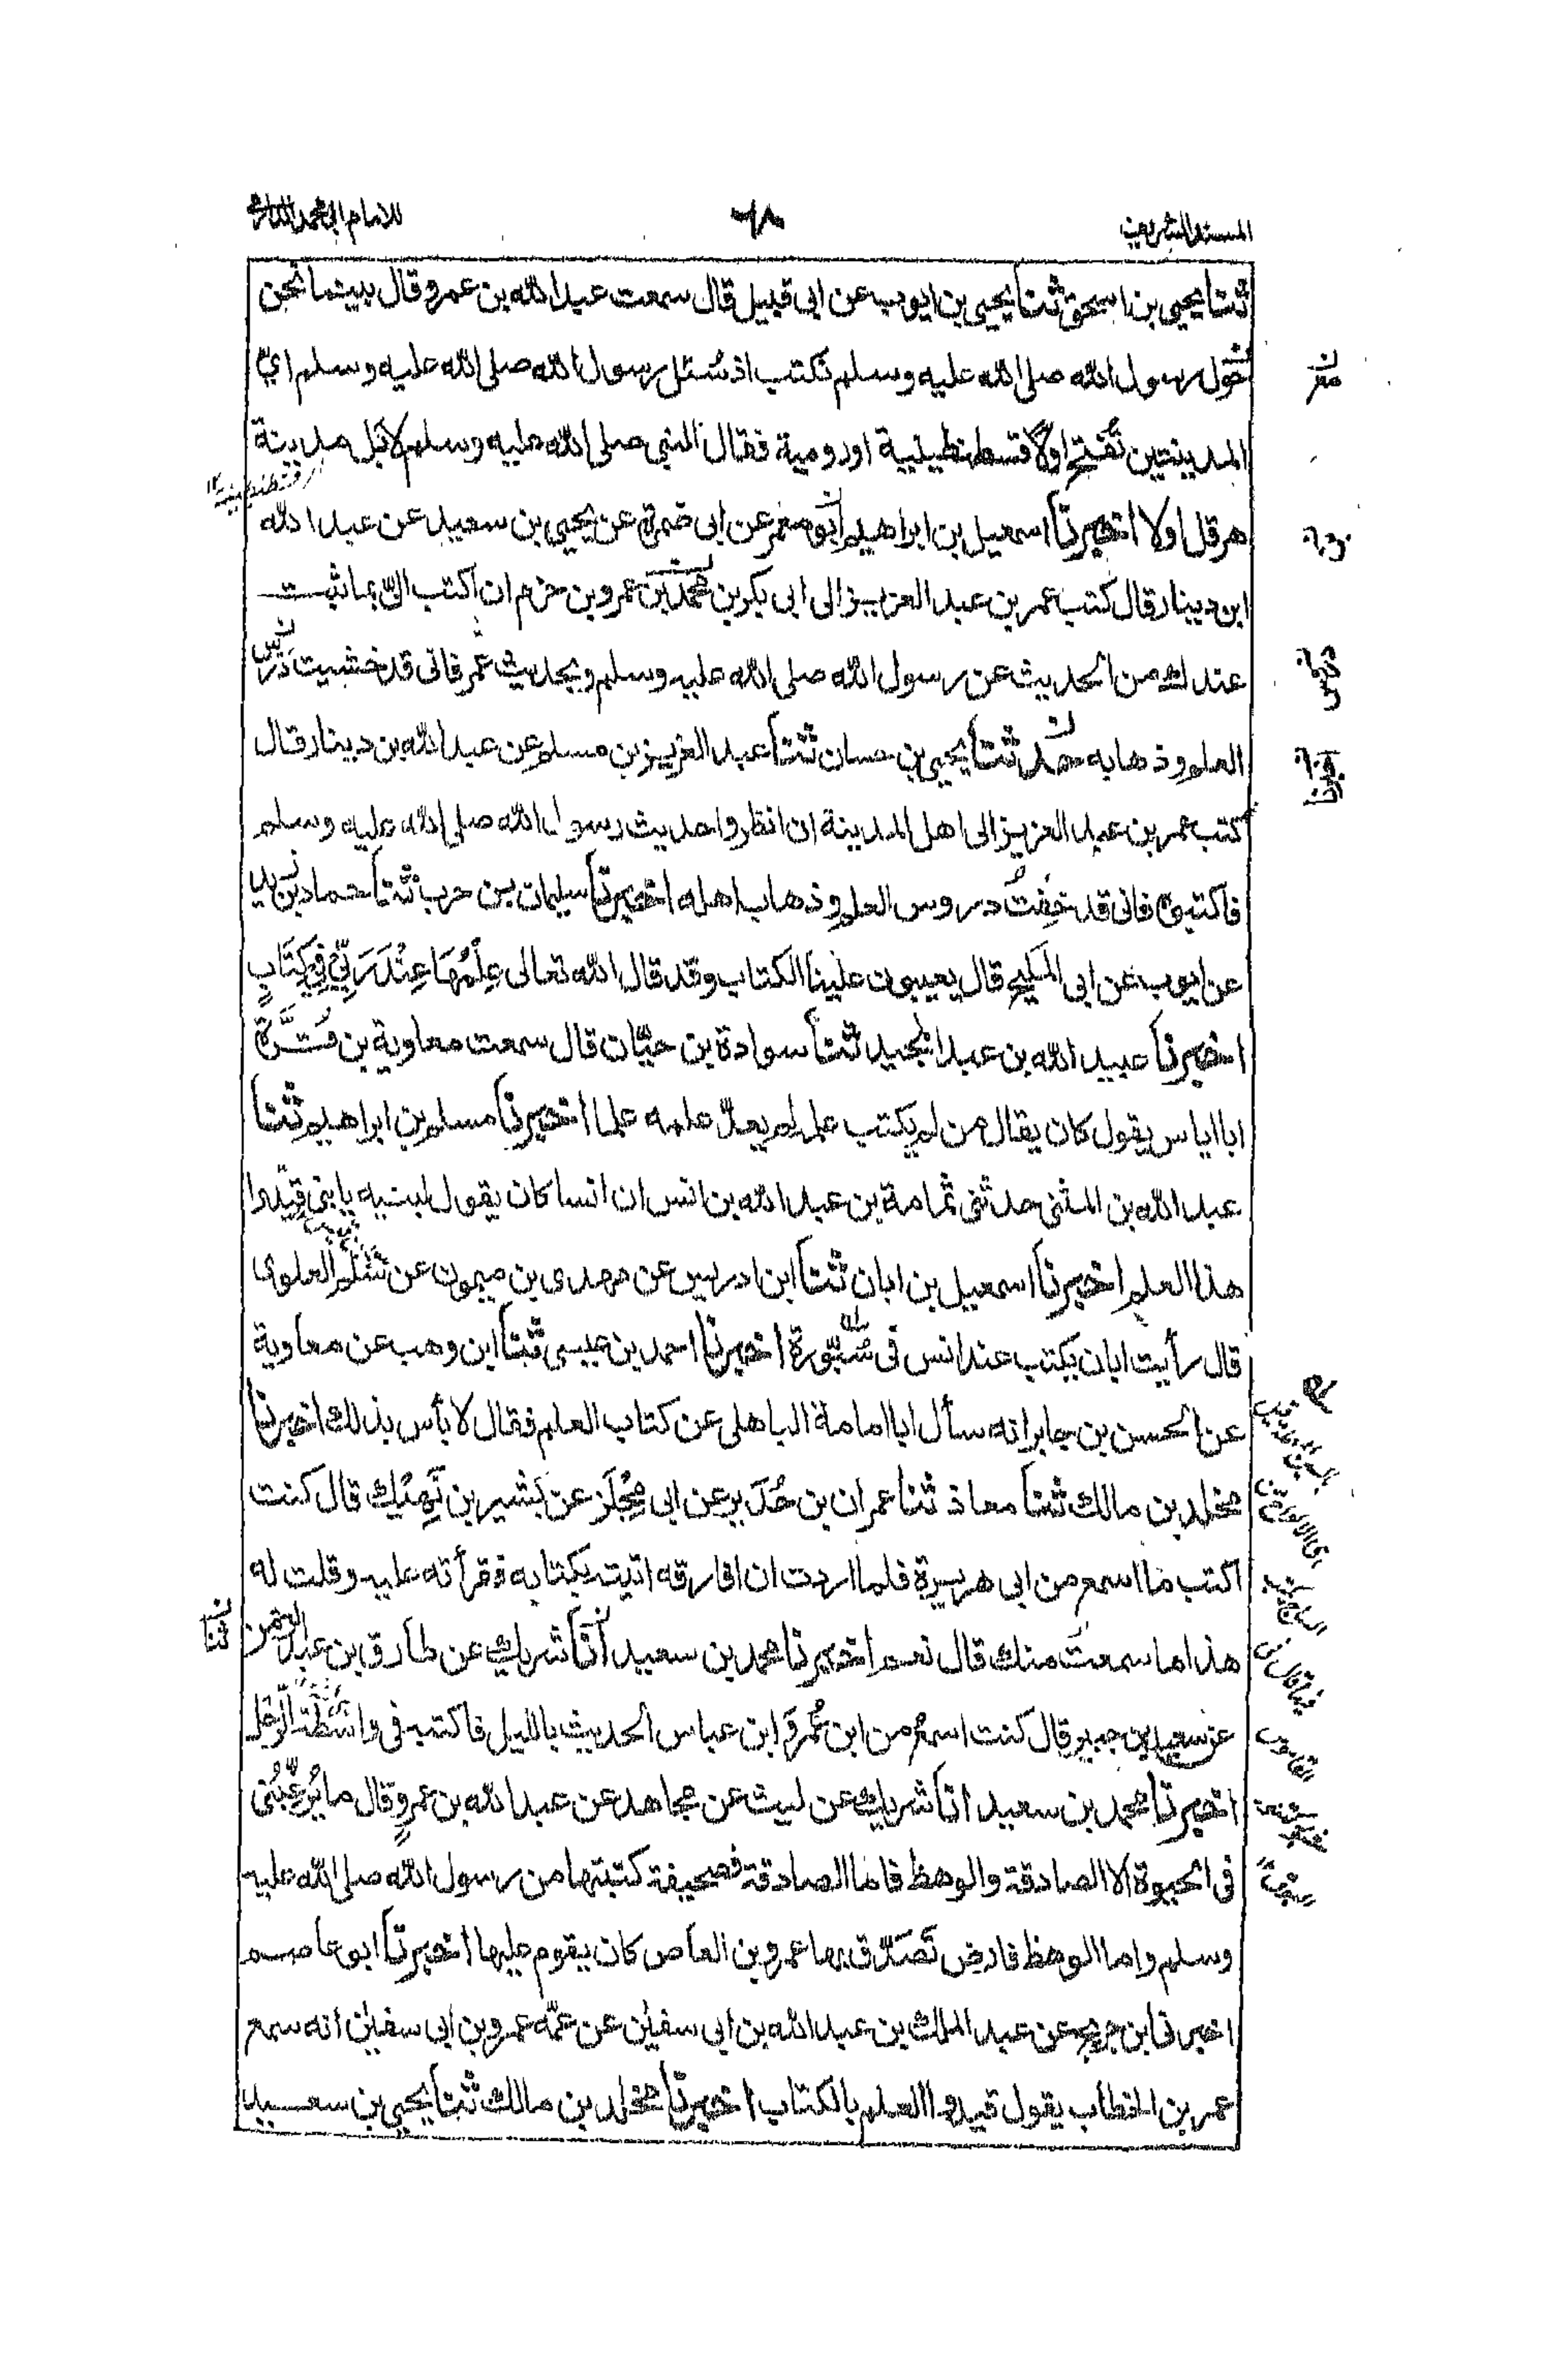 المسند الشريف
٦٨
للامام ابي محمد الدارمي
ثنا يحيى بن اسحق ثنا يحيى بن ايوب عن ابى قبيل قال سمعت عبد الله بن عمرو قال بينما نحن
حول رسول الله صلى الله عليه وسلم نكتب اذ سُئل رسول الله صلى الله عليه وسلم ايّ
المدينتين تُفتح اوّلا قسطنطينية اورومية فقال النبي صلى الله عليه وسلم لا بل مدينة
هرقل اولا اخبرنا اسمعيل بن ابراهيم ابو معمر عن ابى ضمرة عن يحيى بن سعيد عن عبد الله
ابن دينار قال كتب عمر بن عبد العزيز الى ابى بكر بن محمد بن عمرو بن حزم ان اكتب الىّ بما ثبت
عندك من الحديث عن رسول الله صلى الله عليه وسلم وبحديث عمر فانى قد خشيت درس
العلم وذهابه حد ثنا يحيى بن حسان ثنا عبد العزيز بن مسلم عن عبد الله بن دينار قال
كتب عمر بن عبد العزيز الى اهل المدينة ان انظروا حديث رسول الله صلى الله عليه وسلم
فاكتبوه فانى قد خِفتُ دروس العلم وذهاب اهله اخبرنا سليمان بن حرب ثنا حماد بن زيد
عن ايوب عن ابى المليح قال يعيبون علينا الكتاب وقد قال الله تعالى عِلْمُهَا عِنْدَ رَبِّي فِي كِتَابٍ
اخبرنا عبيد الله بن عبد المجيد ثنا سوادة بن حيّان قال سمعت معاوية بن قُرَّة
ابا اياس يقول كان يقال من لم يكتب علمه لم يعدّ علمه علما اخبرنا مسلم بن ابراهيم ثنا
عبد الله بن المثنى حدثنى ثمامة بن عبد الله بن انس ان انسا كان يقول لبنيه يا بنى قيّدوا
هذا العلم اخبرنا اسمعيل بن ابان ثنا ابن ادريس عن مهدى بن ميمون عن سَلْم العلوى
قال رأيت ابان يكتب عند انس فى سبّورة اخبرنا احمد بن عيسى ثنا ابن وهب عن معاوية
عن الحسن بن جابر انه سأل ابا امامة الباهلى عن كتاب العلم فقال لا بأس بذلك اخبرنا
مخلد بن مالك ثنا معاذ ثنا عمران بن حُدَير عن ابى مِجْلَز عن بَشير بن نَهِيْك قال كنت
اكتب ما اسمع من ابى هريرة فلما اردت ان افارقه اتيت بكتابه فقرأته عليه وقلت له
هذا ما سمعتُ منك قال نعم اخبرنا محمد بن سعيد انا شريك عن طارق بن عبد الرحمن
عن سعيد بن جبير قال كنت اسمع من ابن عُمر و ابن عباس الحديث بالليل فاكتبه فى واسطة الرّحل
اخبرنا محمد بن سعيد انا شريك عن ليث عن مجاهد عن عبد الله بن عمرٍو قال ما يُرغّبُنى
فى الحيوة الا الصادقة والوهظ فاما الصادقة فصحيفة كتبتها من رسول الله صلى الله عليه
وسلم واما الوهظ فارض تَصَدّق بها عمرو بن العاص كان يقوم عليها اخبرنا ابو عاصم
اخبرنى ابن جريج عن عبد الملك بن عبد الله بن ابى سفيٰن عن عمّه عمرو بن ابى سفيٰن انه سمع
عمر بن الخطاب يقول قيدوا العلم بالكتاب اخبرنا مخلد بن مالك ثنا يحيى بن سعيد